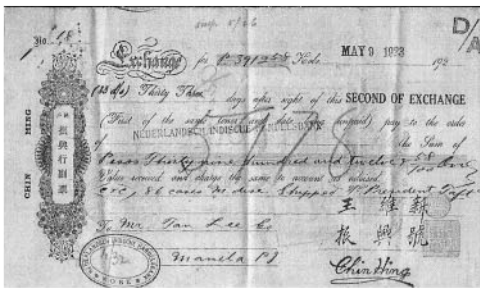 No. 18
D/A
Exchange for P 3912.58 Kobe. MAY 9 1923 192
(33 d/s) Thirty Three days after sight of this SECOND OF EXCHANGE
(First of the same tenor and date being unpaid) pay to the order
of NEDERLANDSCH INDISCHE HANDELSBANK the Sum of
Pesos Thirty nine hundred and twelve & 58/100 only
Value received and charge the same to account as advised.
86 cases Mdise. Shipped President Taft
To Mr. Tan Lee Co
Manila P.I.
振興號
Chin Hing
CHIN HING
振興行副票
KOBE